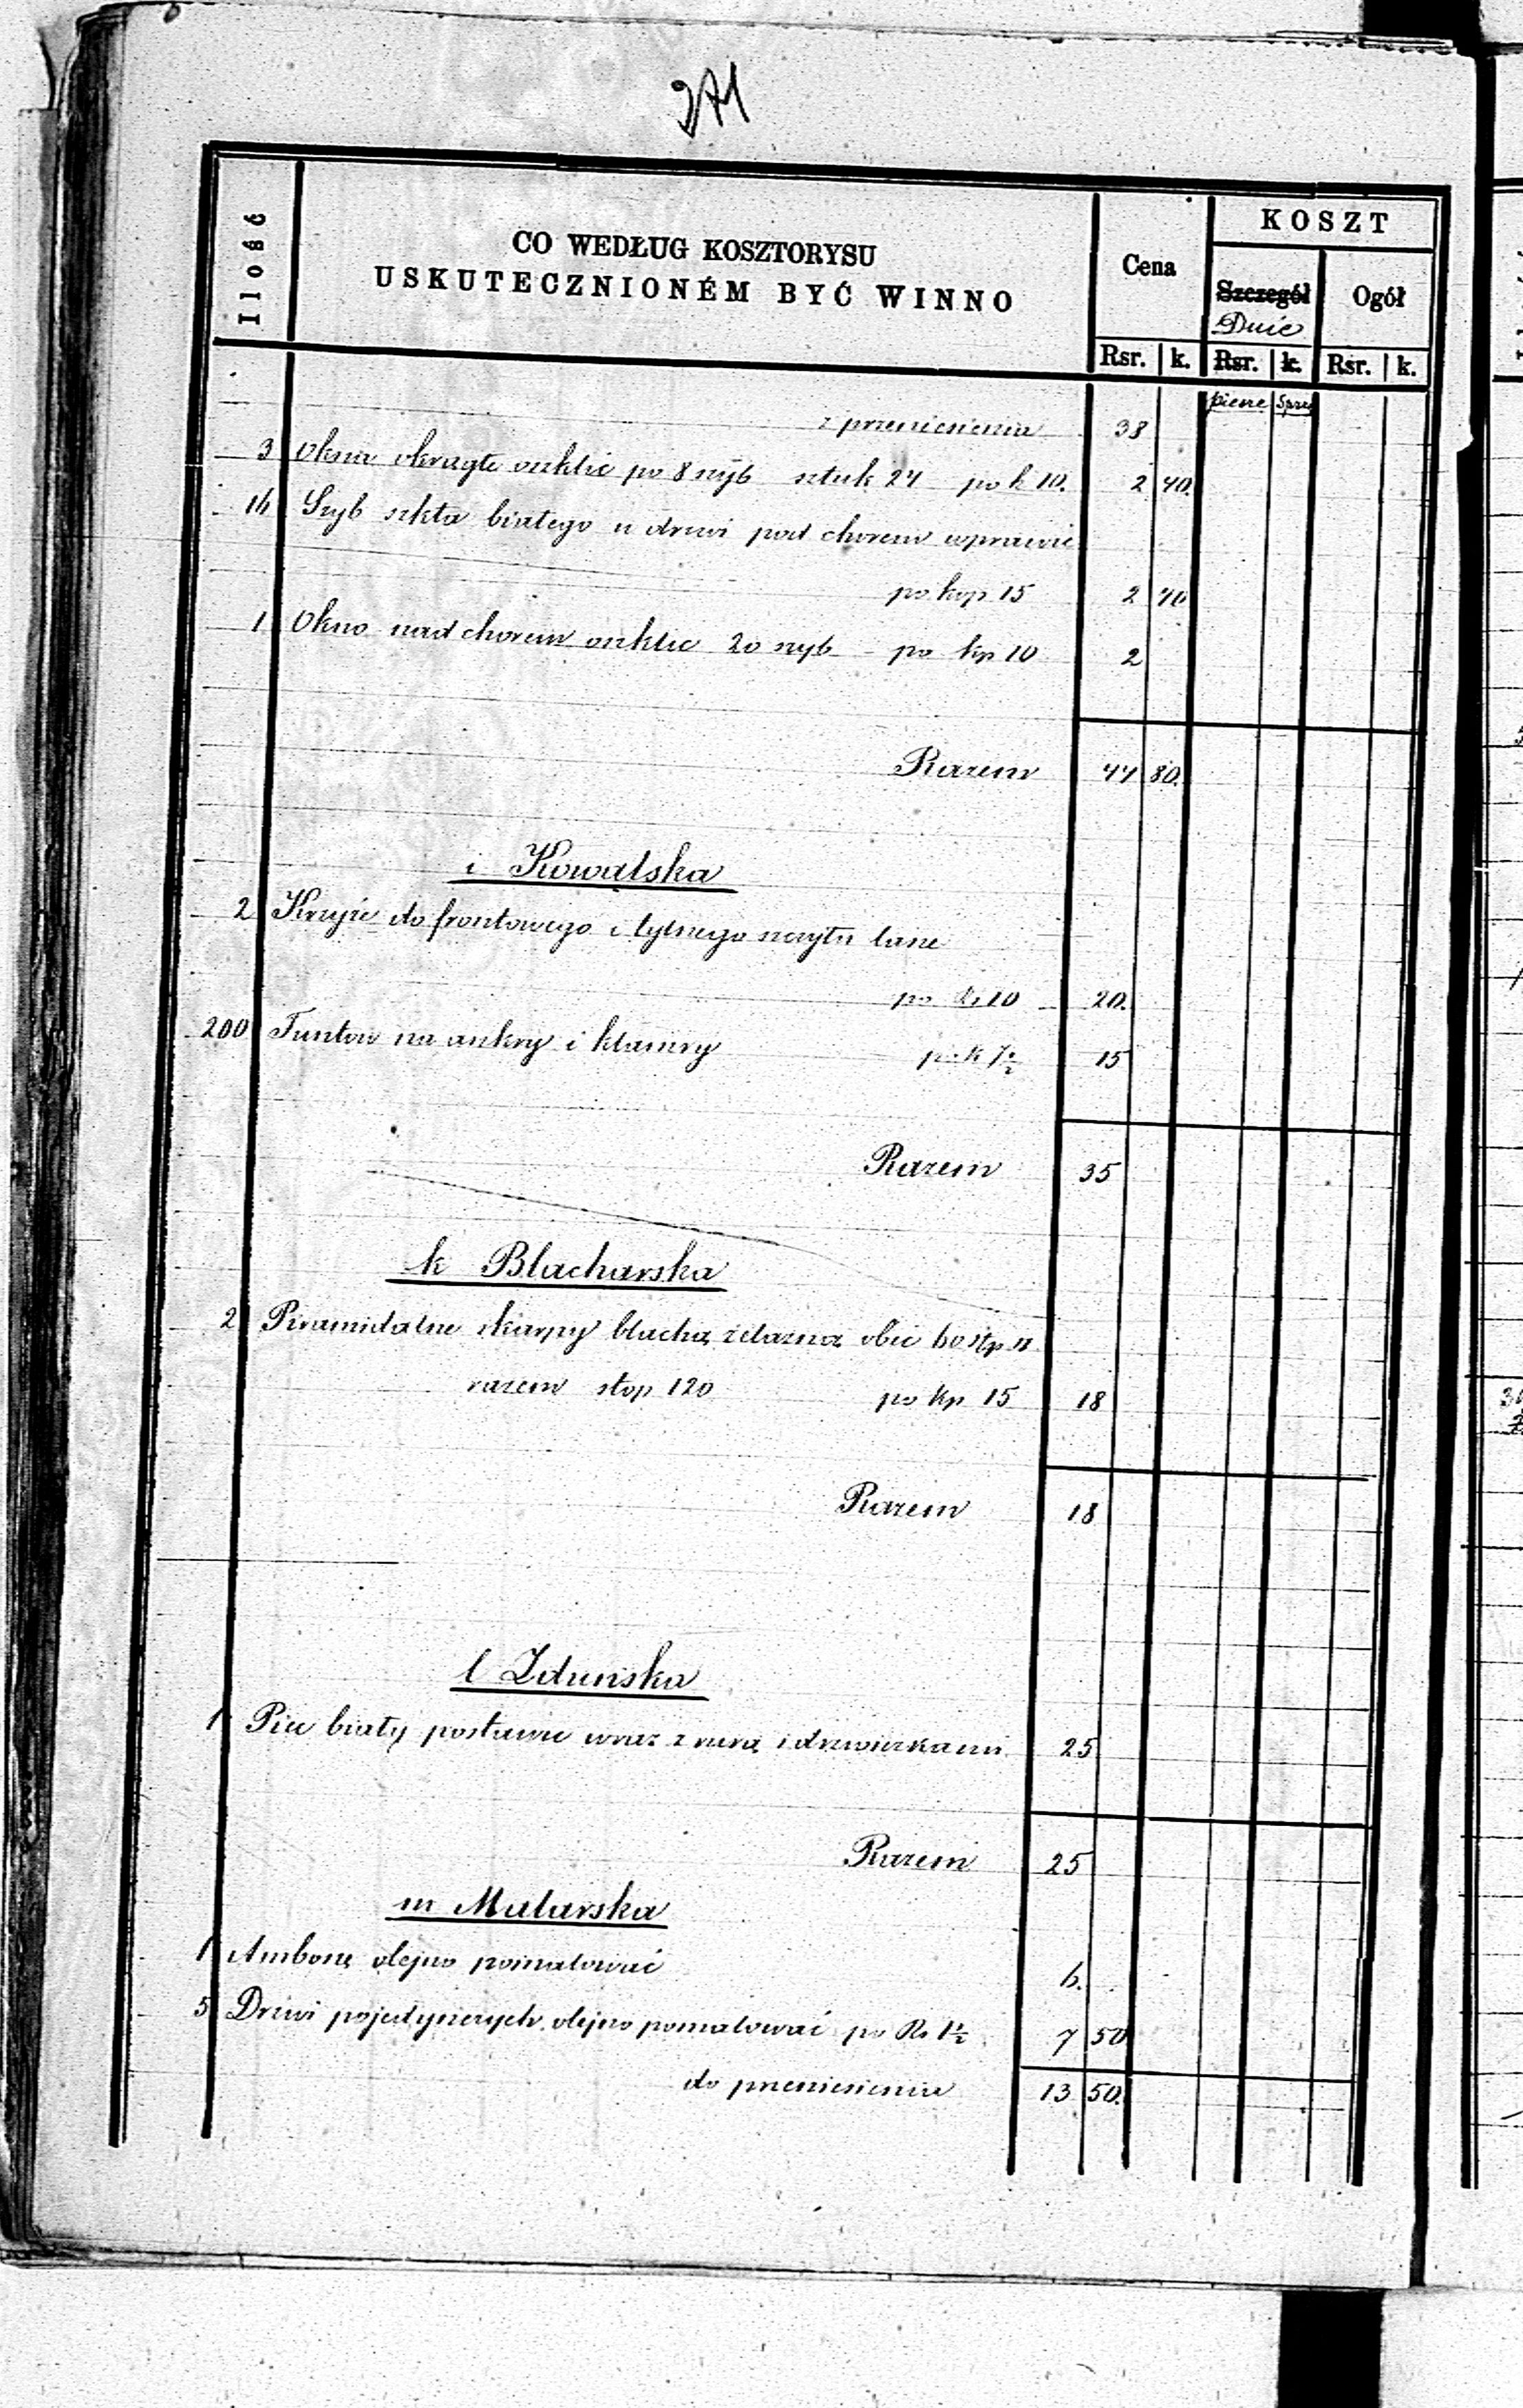 271
Ilość
CO WEDŁUG KOSZTORYSU
USKUTECZNIONÉM BYĆ WINNO
Cena
KOSZT
Szczegół
Ogół
Dnie
Rsr. k. Rsr. k. Rsr. k.
piesze sprz
z przeniesienia 38
3 Okna okrągłe oszklić po 8 szyb sztuk 24 po k 10. 2 40.
16 Szyb szkła białego u drzwi pod chorem wprawić
po kop 15 2 40
1 Okno nad chorem oszklić 20 szyb - po kp 10 2
Razem 44 80.
i Kowalska
2 Krzyże do frontowego i tylnego szczytu lane
po Rs 10 20.
200 Funtów na ankry i klamry po k 7½ 15
Razem 35
k Blacharska
2 Piramidalne skarpy blachą żelazną obić 60 stp
razem stop 120 po kp 15 18
Razem 18
l Zduńska
1 Piec biały postawić wraz z rurą i drzwiczkami 25
Razem 25
m Malarska
1 Ambonę olejno pomalować 6.
5 Drzwi pojedynczych olejno pomalować po Rs 1½ 7 50
do przeniesienia 13 50.